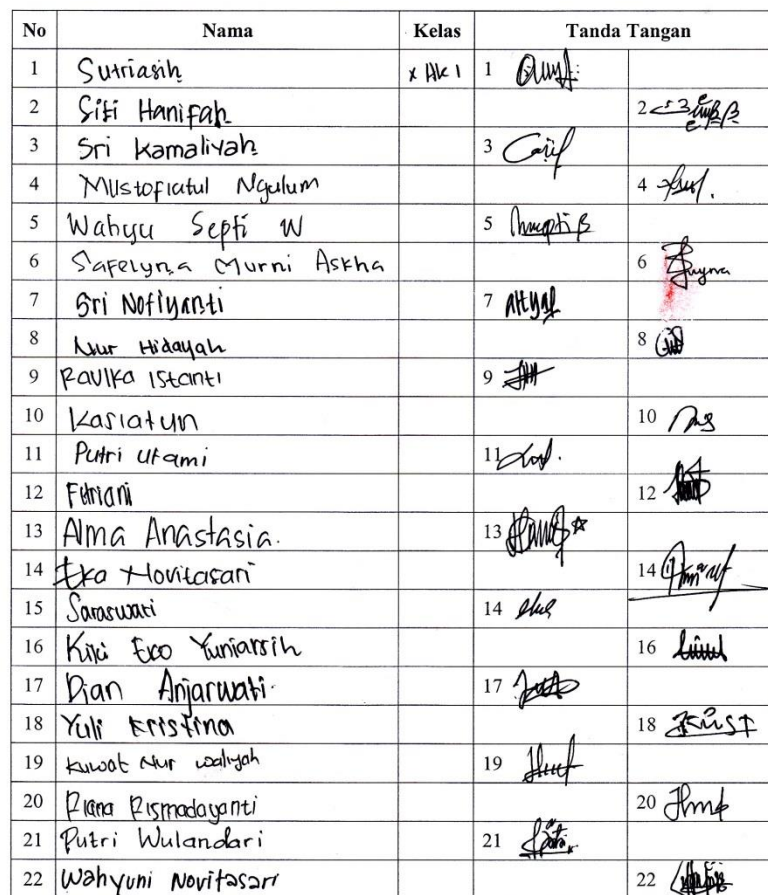 No Nama Kelas Tanda Tangan
1 Sutriasih x AK 1 1
2 Siti Hanifah 2
3 Sri Kamaliyah 3
4 Mustofiatul Ngulum 4
5 Wahyu Septi W 5
6 Safelyna Murni Askha 6
7 Sri Nofiyanti 7
8 Nur Hidayah 8
9 Ravika Istanti 9
10 Kasiatun 10
11 Putri Utami 11
12 Fitriani 12
13 Alma Anastasia. 13
14 Eka Novitasari 14
15 Saraswati 14
16 Kiki Eko Yuniarsih 16
17 Dian Anjarwati. 17
18 Yuli Kristina 18
19 Kuwat Nur Waliyah 19
20 Riana Rismadayanti 20
21 Putri Wulandari 21
22 Wahyuni Novitasari 22